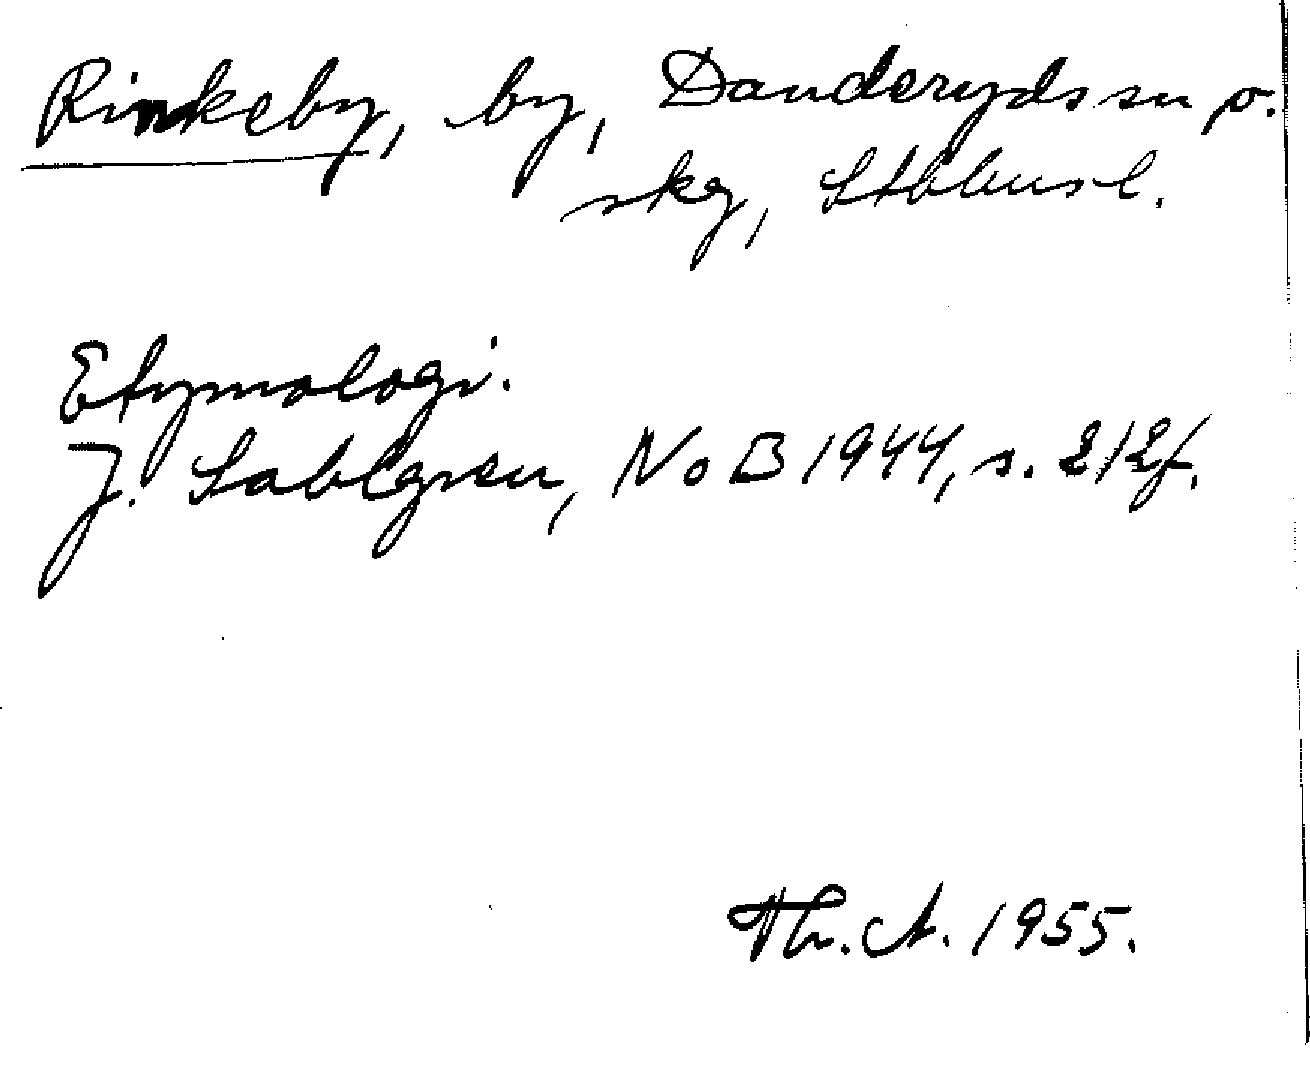 Rinkeby, by, Danderyds sn o.
skg, Sthlms l.
Etymologi.
J. Sahlgren, NoB 1944, s. 212f.
Th. A. 1955.